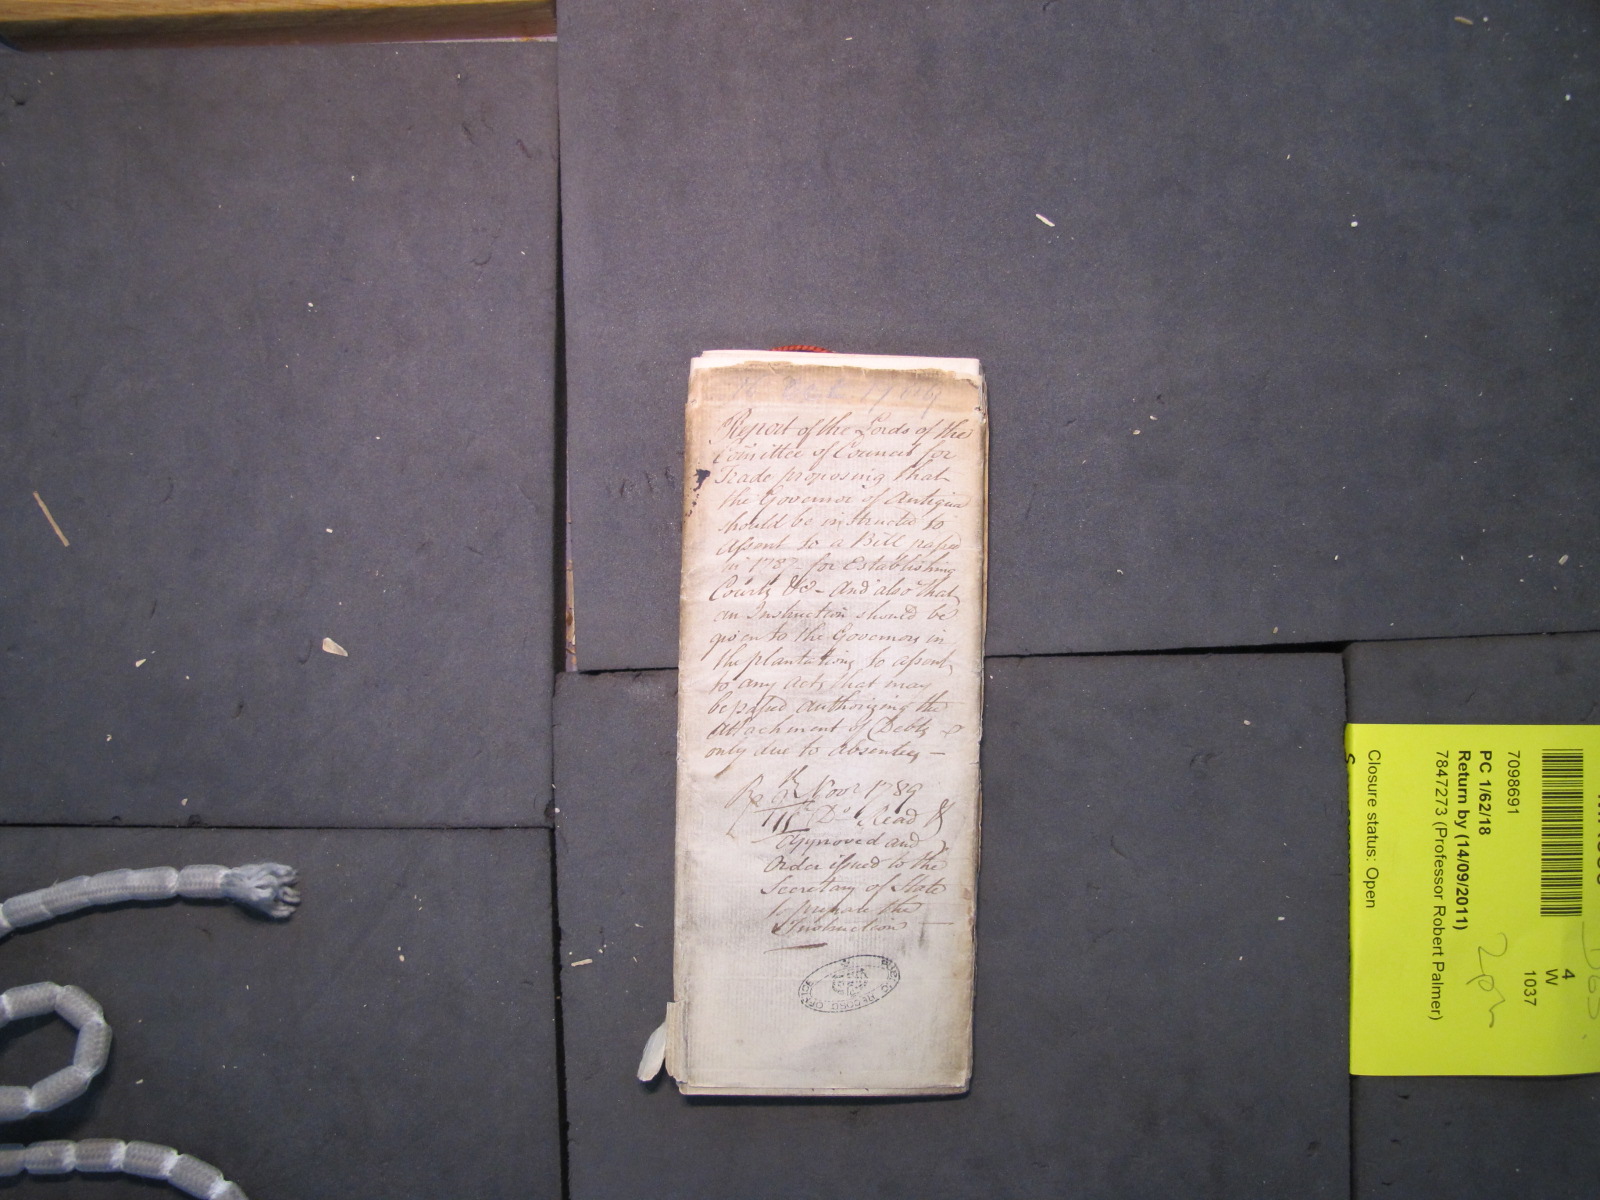 Report of the Lords of the
Comittee of Council for
Trade proposing that
the Governor of Antigua
should be instructed to
Assent to a Bill passed
in 1787 for Establishing
Courts &c - And also that
an Instruction should be
given to the Governors in
the plantations to assent
to any Acts that may
be passed Authorizing the
Attachment of Debts
only due to Absentees —
Novr 1789
Do Read &
Approved and
Order issued to the
Secretary of State
to prepare the
Instruction —
PUBLIC RECORD OFFICE
7098691
PC 1/62/18
Return by (14/09/2011)
7847273 (Professor Robert Palmer)
Closure status: Open
4
W
1037